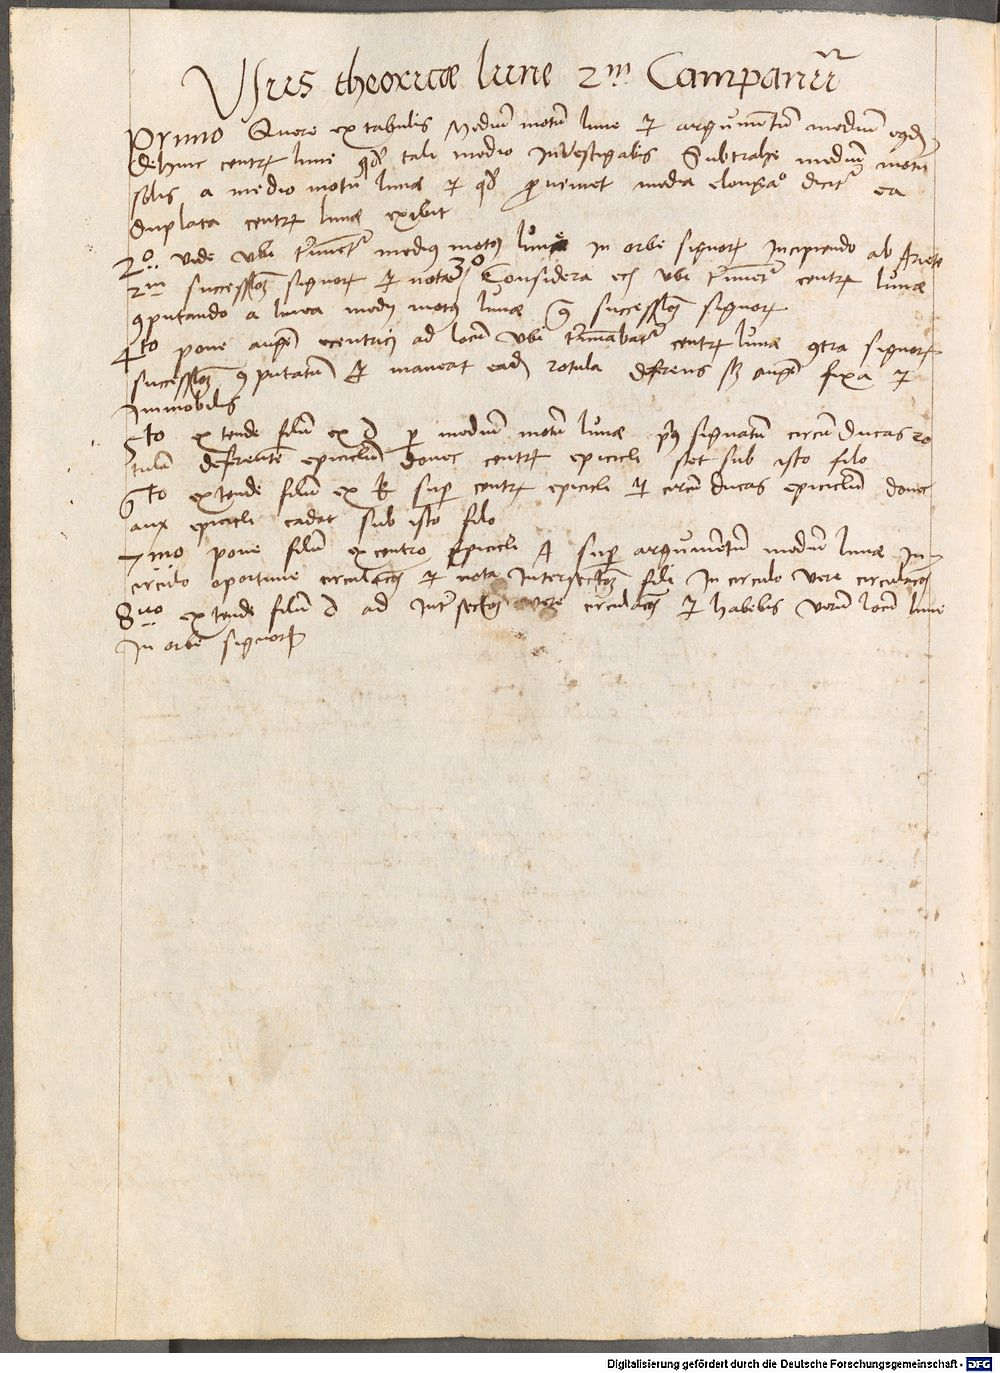 Usus theoricae lune 2m Campanum
Primo Quere ex tabulis Medium motum lune et argumentum medium
dehinc centrum lune qd tali medio Investigabis Subtrahe medium motum
solis a medio motu lunae et qd proveniet media elongatio dicitur ea
duplata centrum lunae exibit
2o. vide ubi terminetur medius motus lune in orbe signorum Incipiendo ab Ariete
2m successionem signorum et nota 3o Considera ubi terminetur centrum lunae
computando a linea medii motus lunae successionem signorum
4to pone augem ecentrici ad locum ubi terminabatur centrum lunae contra signorum
successionem computatum et maneat eadem rotula deferens augem fixa et
Immobilis
5to extende filum ex d per medium motum lunae prius signatum circumducas ro
tulam deferentem epiciclum donec centrum epicicli stet sub isto filo
6to extende filum ex k super centrum epicicli et circumducas epiciclum donec
aux epicicli cadat sub isto filo
7mo pone filum ex centro epicicli A super argumentum medium lunae In
circulo oportune circulacionis et nota Intersectionem fili In circulo vere circulacionis
8uo extende filum d ad Intersectionem vere circulacionis et habebis verum locum lune
In orbe signorum
Digitalisierung gefördert durch die Deutsche Forschungsgemeinschaft - DFG